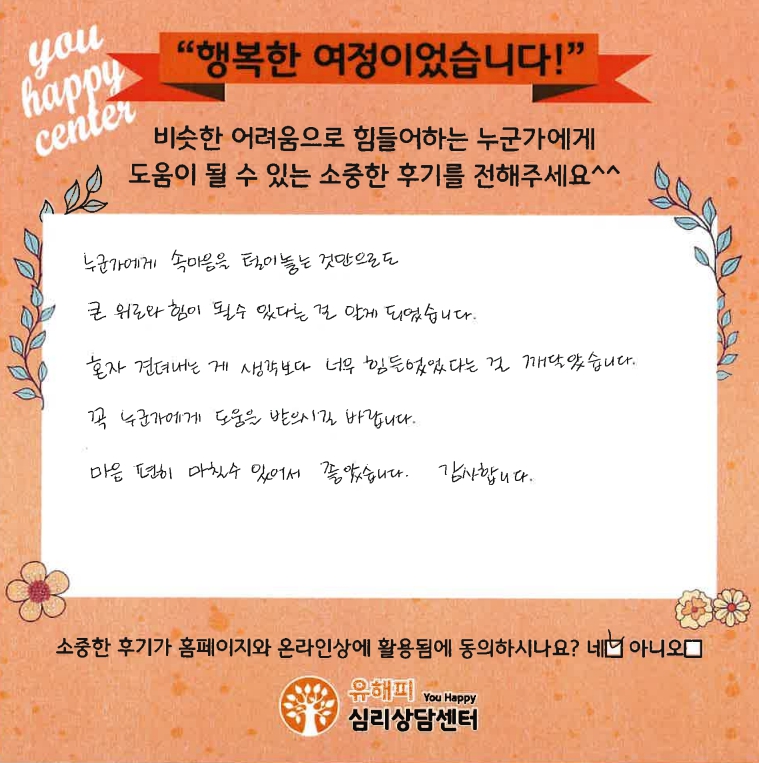 you
happy
center
“행복한 여정이었습니다!”
비슷한 어려움으로 힘들어하는 누군가에게
도움이 될 수 있는 소중한 후기를 전해주세요^^
누군가에게 속마음을 털어놓는 것만으로도
큰 위로와 힘이 될수 있다는 걸 알게 되었습니다.
혼자 견뎌내는 게 생각보다 너무 힘든일이었다는 걸 깨달았습니다.
꼭 누군가에게 도움을 받으시길 바랍니다.
마음 편히 마칠수 있어서 좋았습니다. 감사합니다.
소중한 후기가 홈페이지와 온라인상에 활용됨에 동의하시나요? 네 아니오
유해피 You Happy
심리상담센터